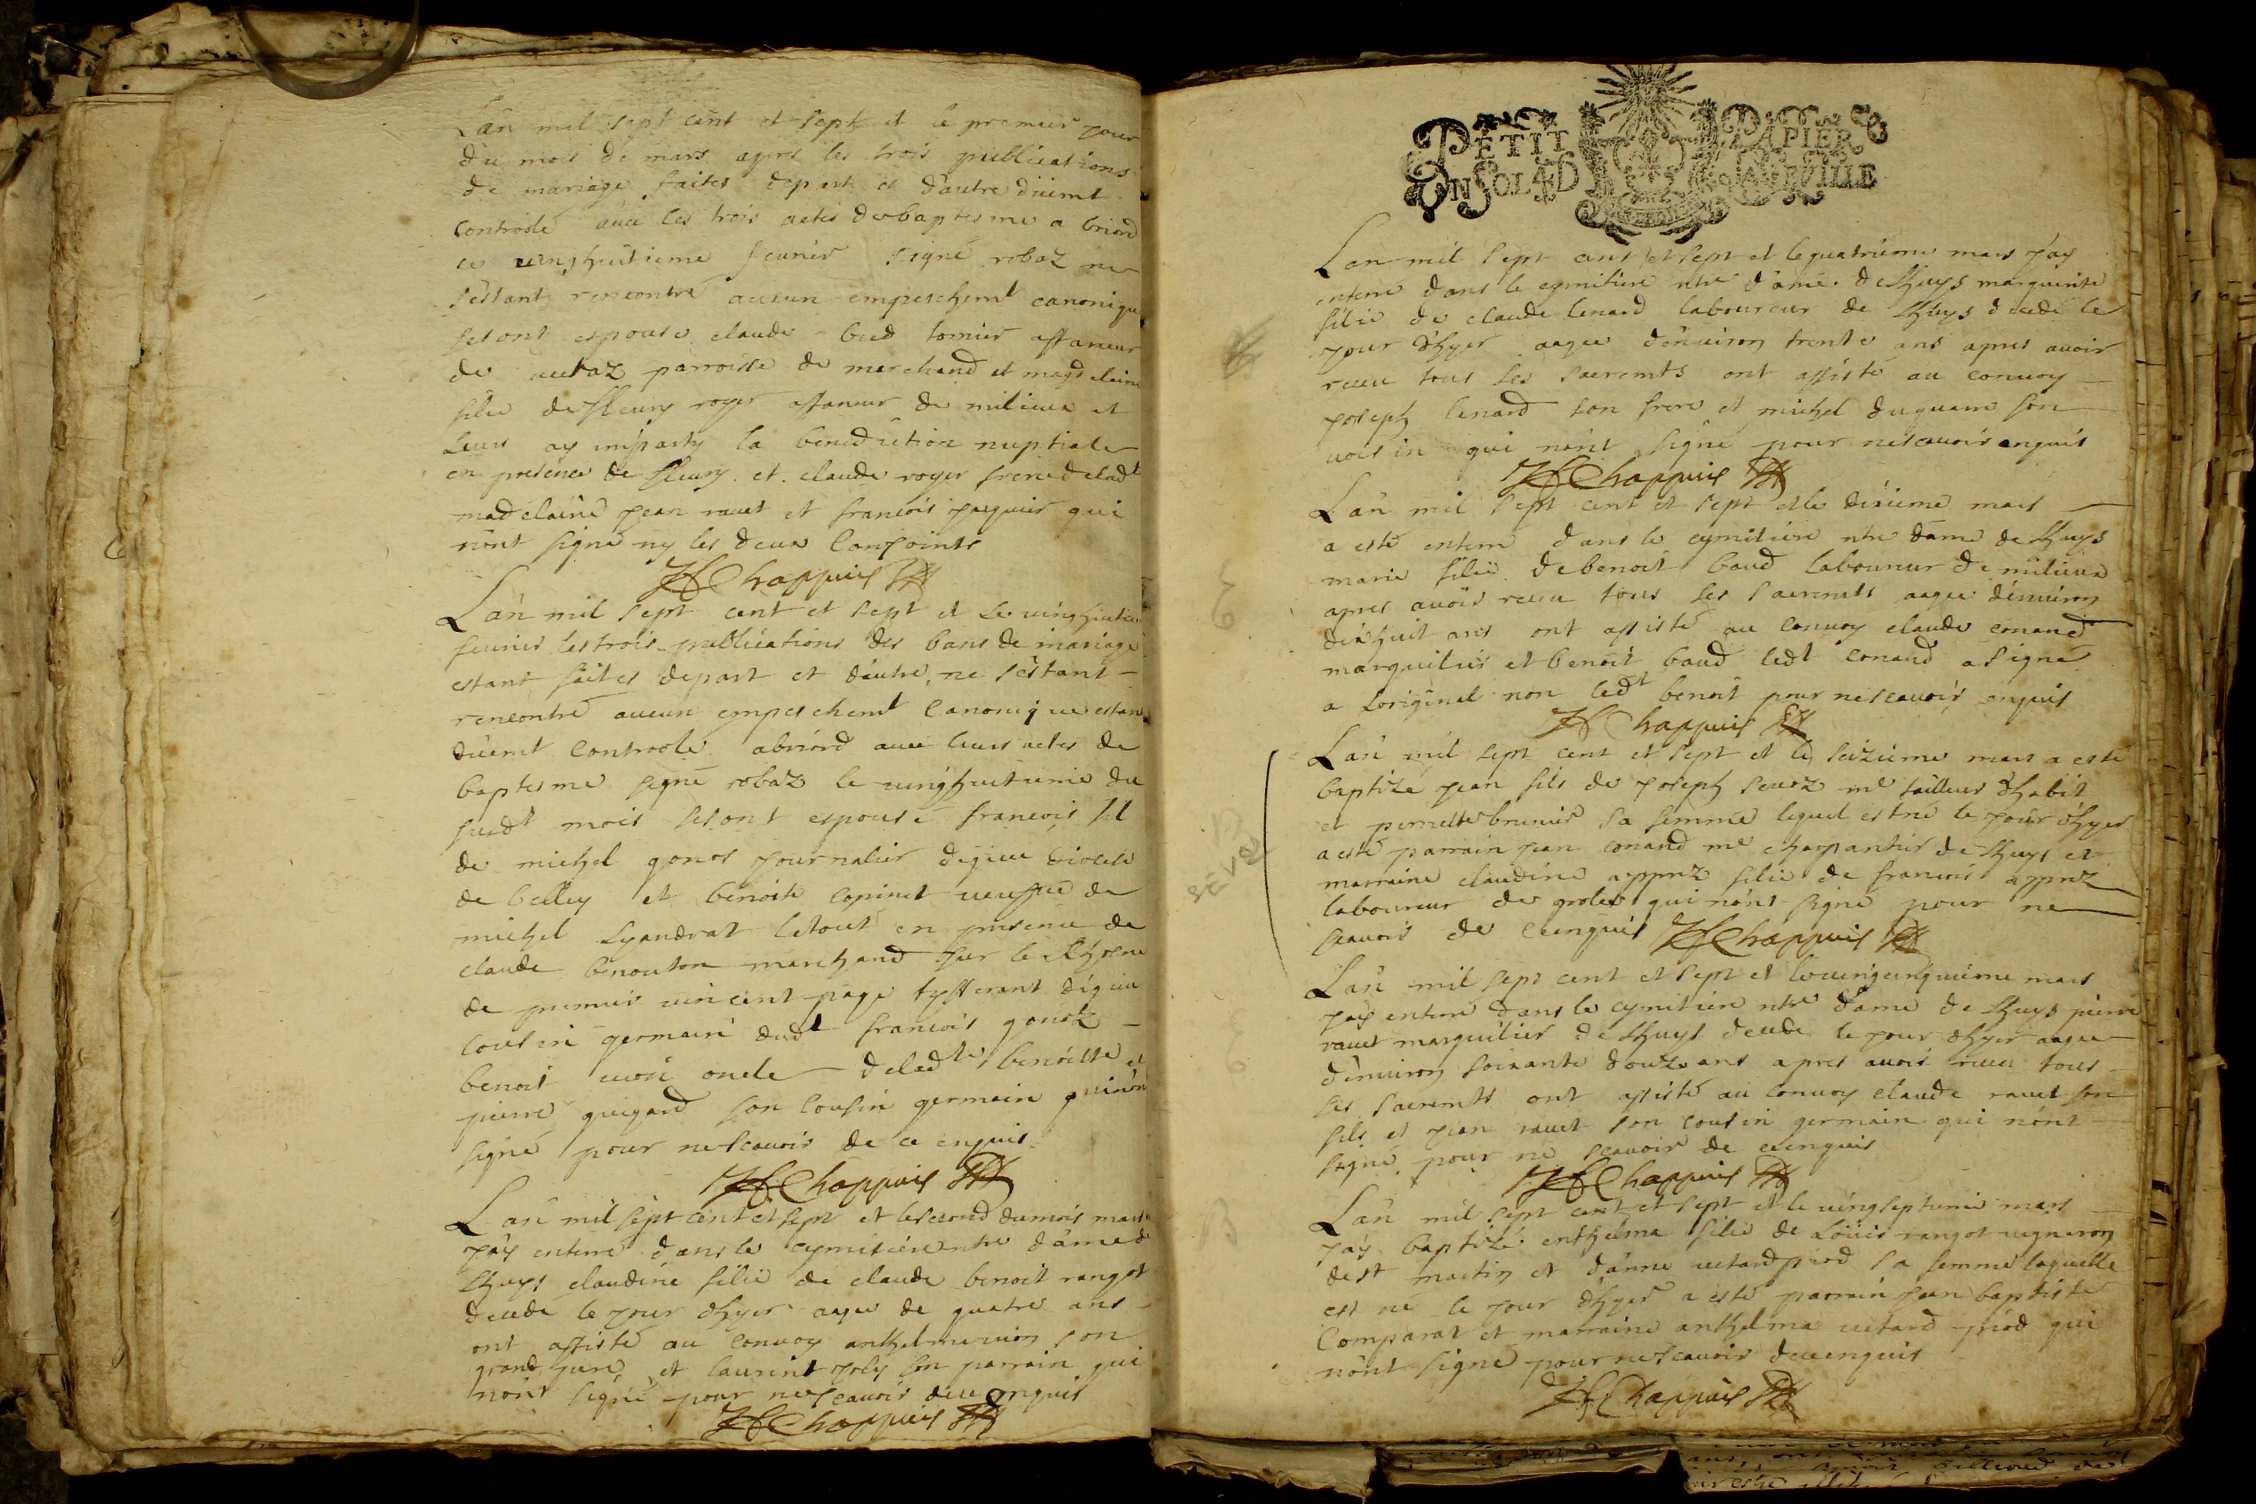 Lan mil sept cent et sept et le premier jour
du mois de mars apres les trois publications
de mariage faites depart et d'autre düemt
controolé avec les trois actes de baptesme a briord
ce vingthuitieme fevrier signé robaz ne
s'estant rencontré aucun empeschemt canonique
se sont espousé claude tornier affaneur
de paroisse de marchand et magdelaine
filie de fleury roger affaneur de milieux et
leurs ay imparty la benediction nuptiale
en presence de fleury et claude roger frere de ladt
madelaine jean ravet et francois jacquier qui
nont signé ny les deux conjoints
Chappuis
Lan mil sept cent et sept et le vingthuitie
fevrier les trois publications des bans de mariage
estant faites depart et d'autre ne s'estant
rencontré aucun empeschemt canonique estan
düemt controolé abriord avec leurs actes de
baptesme signé robaz le vingthuitieme du
susdt mois se sont espousé francois fil
de michel gonet journalier diocese
de belley et benoite copinet veuffve de
michel letout en presence de
claude marchand sur le Rhosne
de premier vincent page
cousin germain dudt francois
benoit oncle deladte benoitte et
pierre guigard son cousin germain qui nont
signé pour ne scavoir de ce enquis
Chappuis
Lan mil sept cent et sept et le second du mois mars
j'ay enterré dans le cymitiere ntre dame de
Lhuys claudine filie de claude benoit rangot
decedé le jour d'hyer agee de quatre ans
ont assisté au convoy anthelme son
grand pere et laurent joly son parrain qui
nont signé pour ne scavoir de ce enquis
Chappuis
PETIT PAPIER
UN SOL 4 D LA FEVILLE
Lan mil sept cens et sept et le quatrieme mars j'ay
enterré dans le cymitiere ntre dame de Lhuys marguerite
filie de claude lenard laboureur de Lhuys decedé le
jour d'hyer agee d'environ trente ans apres avoir
receu tous ses sacremts ont assisté au convoy
joseph lenard son frere et michel duquaire son
voisin qui nont signé pour ne scavoir enquis
Chappuis
Lan mil sept cent et sept et le dixieme mars
a esté enterré dans le cymitiere ntre dame de Lhuys
marie filie de benoit baud laboureur de milieux
apres avoir receu tous ses sacremts agee d'environ
dixhuit ans ont assisté au convoy claude conand
marguilier et benoit baud ledt conand a signé
a loriginal non ledt benoit pour ne scavoir enquis
Chappuis
Lan mil sept cent et sept et le seizieme mars a esté
baptizé jean fils de joseph sevoz me tailleur d'habit
et pernette brunier sa femme lequel est né le jour d'hyer
a esté parrain jean conand me charpantier de Lhuys et
marraine claudine appnez filie de francois appnez
laboureur de groley qui nont signé pour ne
scavoir de ce enquis Chappuis
SÈVOZ
Lan mil sept cent et sept et le vingcinquieme mars
j'ay enterré dans le cymitiere ntre dame de Lhuys pierre
ravet marguilier de Lhuys decedé le jour d'hyer agee
d'environ soixante douze ans apres avoir receu tous
ses sacremts ont assisté au convoy claude ravet son
fils et jean ravet son cousin germain qui nont
signé pour ne scavoir de ce enquis
Chappuis
Lan mil sept cent et sept et le vingseptieme mars
j'ay baptizé enthelma filie de Loüis rangot vigneron
de st martin et d'anne vetard piod sa femme laquelle
est né le jour d'hyer a esté parrain jean baptiste
Comparat et marraine anthelma vetard piod qui
nont signé pour ne scavoir de ce enquis
Chappuis